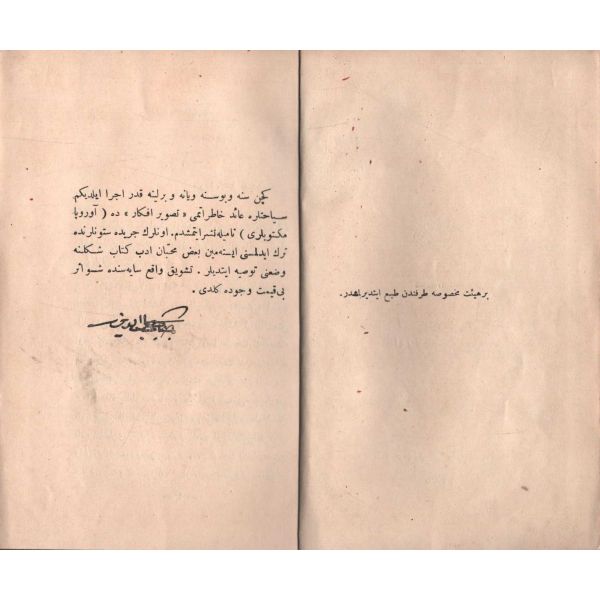 بر هیئت مخصوصه طرفندن طبع ایتدیرلمشدر.
کچن سنه و بوسنه ویانه و برلینه قدر اجرا ایلدیکم
سیاحتلره عائد خاطراتمی « تصویر افکار » ده ( آوروپا
مکتوبلری ) نامیله نشر ایتمشدم. اونلرك جریده ستونلرنده
ترك ایدلمسنی ایسته‌مین بعض محبان ادب کتاب شکلنه
وضعنی توصیه ایتدیلر. تشویق واقع سایه‌سنده شو اثر
بی‌قیمت وجوده کلدی.